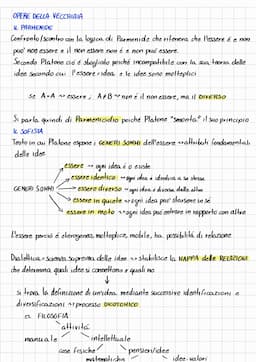 OPERE DELLA VECCHIAIA
IL PARMENIDE
Confronto/scontro con la logica di Parmenide che riteneva che l'essere è e non
può non essere e il non essere non è e non può essere.
Secondo Platone ciò è sbagliato poiché incompatibile con la sua teoria delle
idee secondo cui l'essere = idea e le idee sono molteplici
se A=A → essere, A≠B → non è il non essere, ma il DIVERSO
Si parla quindi di Parmenicidio poiché Platone "smonta" il suo principio
IL SOFISTA
Testo in cui Platone espone i GENERI SOMMI dell'essere → attributi fondamentali
delle idee
essere → ogni idea è o esiste
essere identico → ogni idea è identica a se stessa
GENERI SOMMI essere diverso → ogni idea è diversa dalle altre
essere in quiete → ogni idea può starsene in sé
essere in moto → ogni idea può entrare in rapporto con altre
L'essere perciò è eterogeneo, molteplice, mobile, ha possibilità di relazione
Dialettica = scienza suprema delle idee → stabilisce la MAPPA delle RELAZIONI
che determina quali idee si connettono e quali no
↓
si trova la definizione di un'idea, mediante successive identificazioni e
diversificazioni → processo DICOTOMICO
es. FILOSOFIA
attività
manuale intellettuale
cose fisiche pensieri/idee
matematiche idee-valori